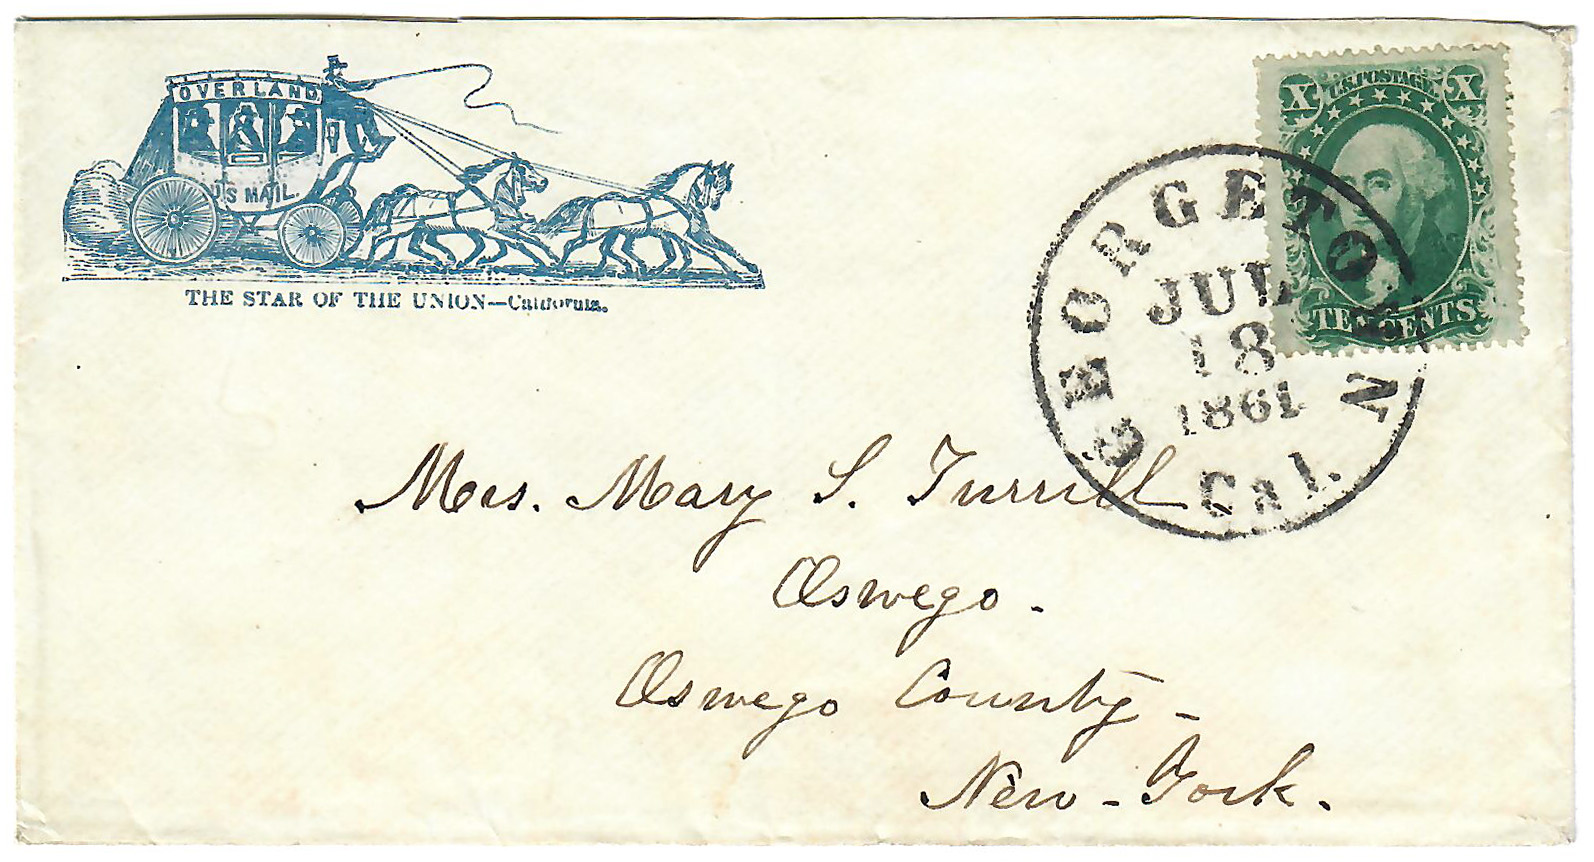 OVERLAND
U S MAIL.
THE STAR OF THE UNION—California.
X U.S. POSTAGE X
TEN CENTS
GEORGETOWN
JUL
18
1861
Cal.
Mrs. Mary S. Turrill
Oswego.
Oswego County-
New-York.